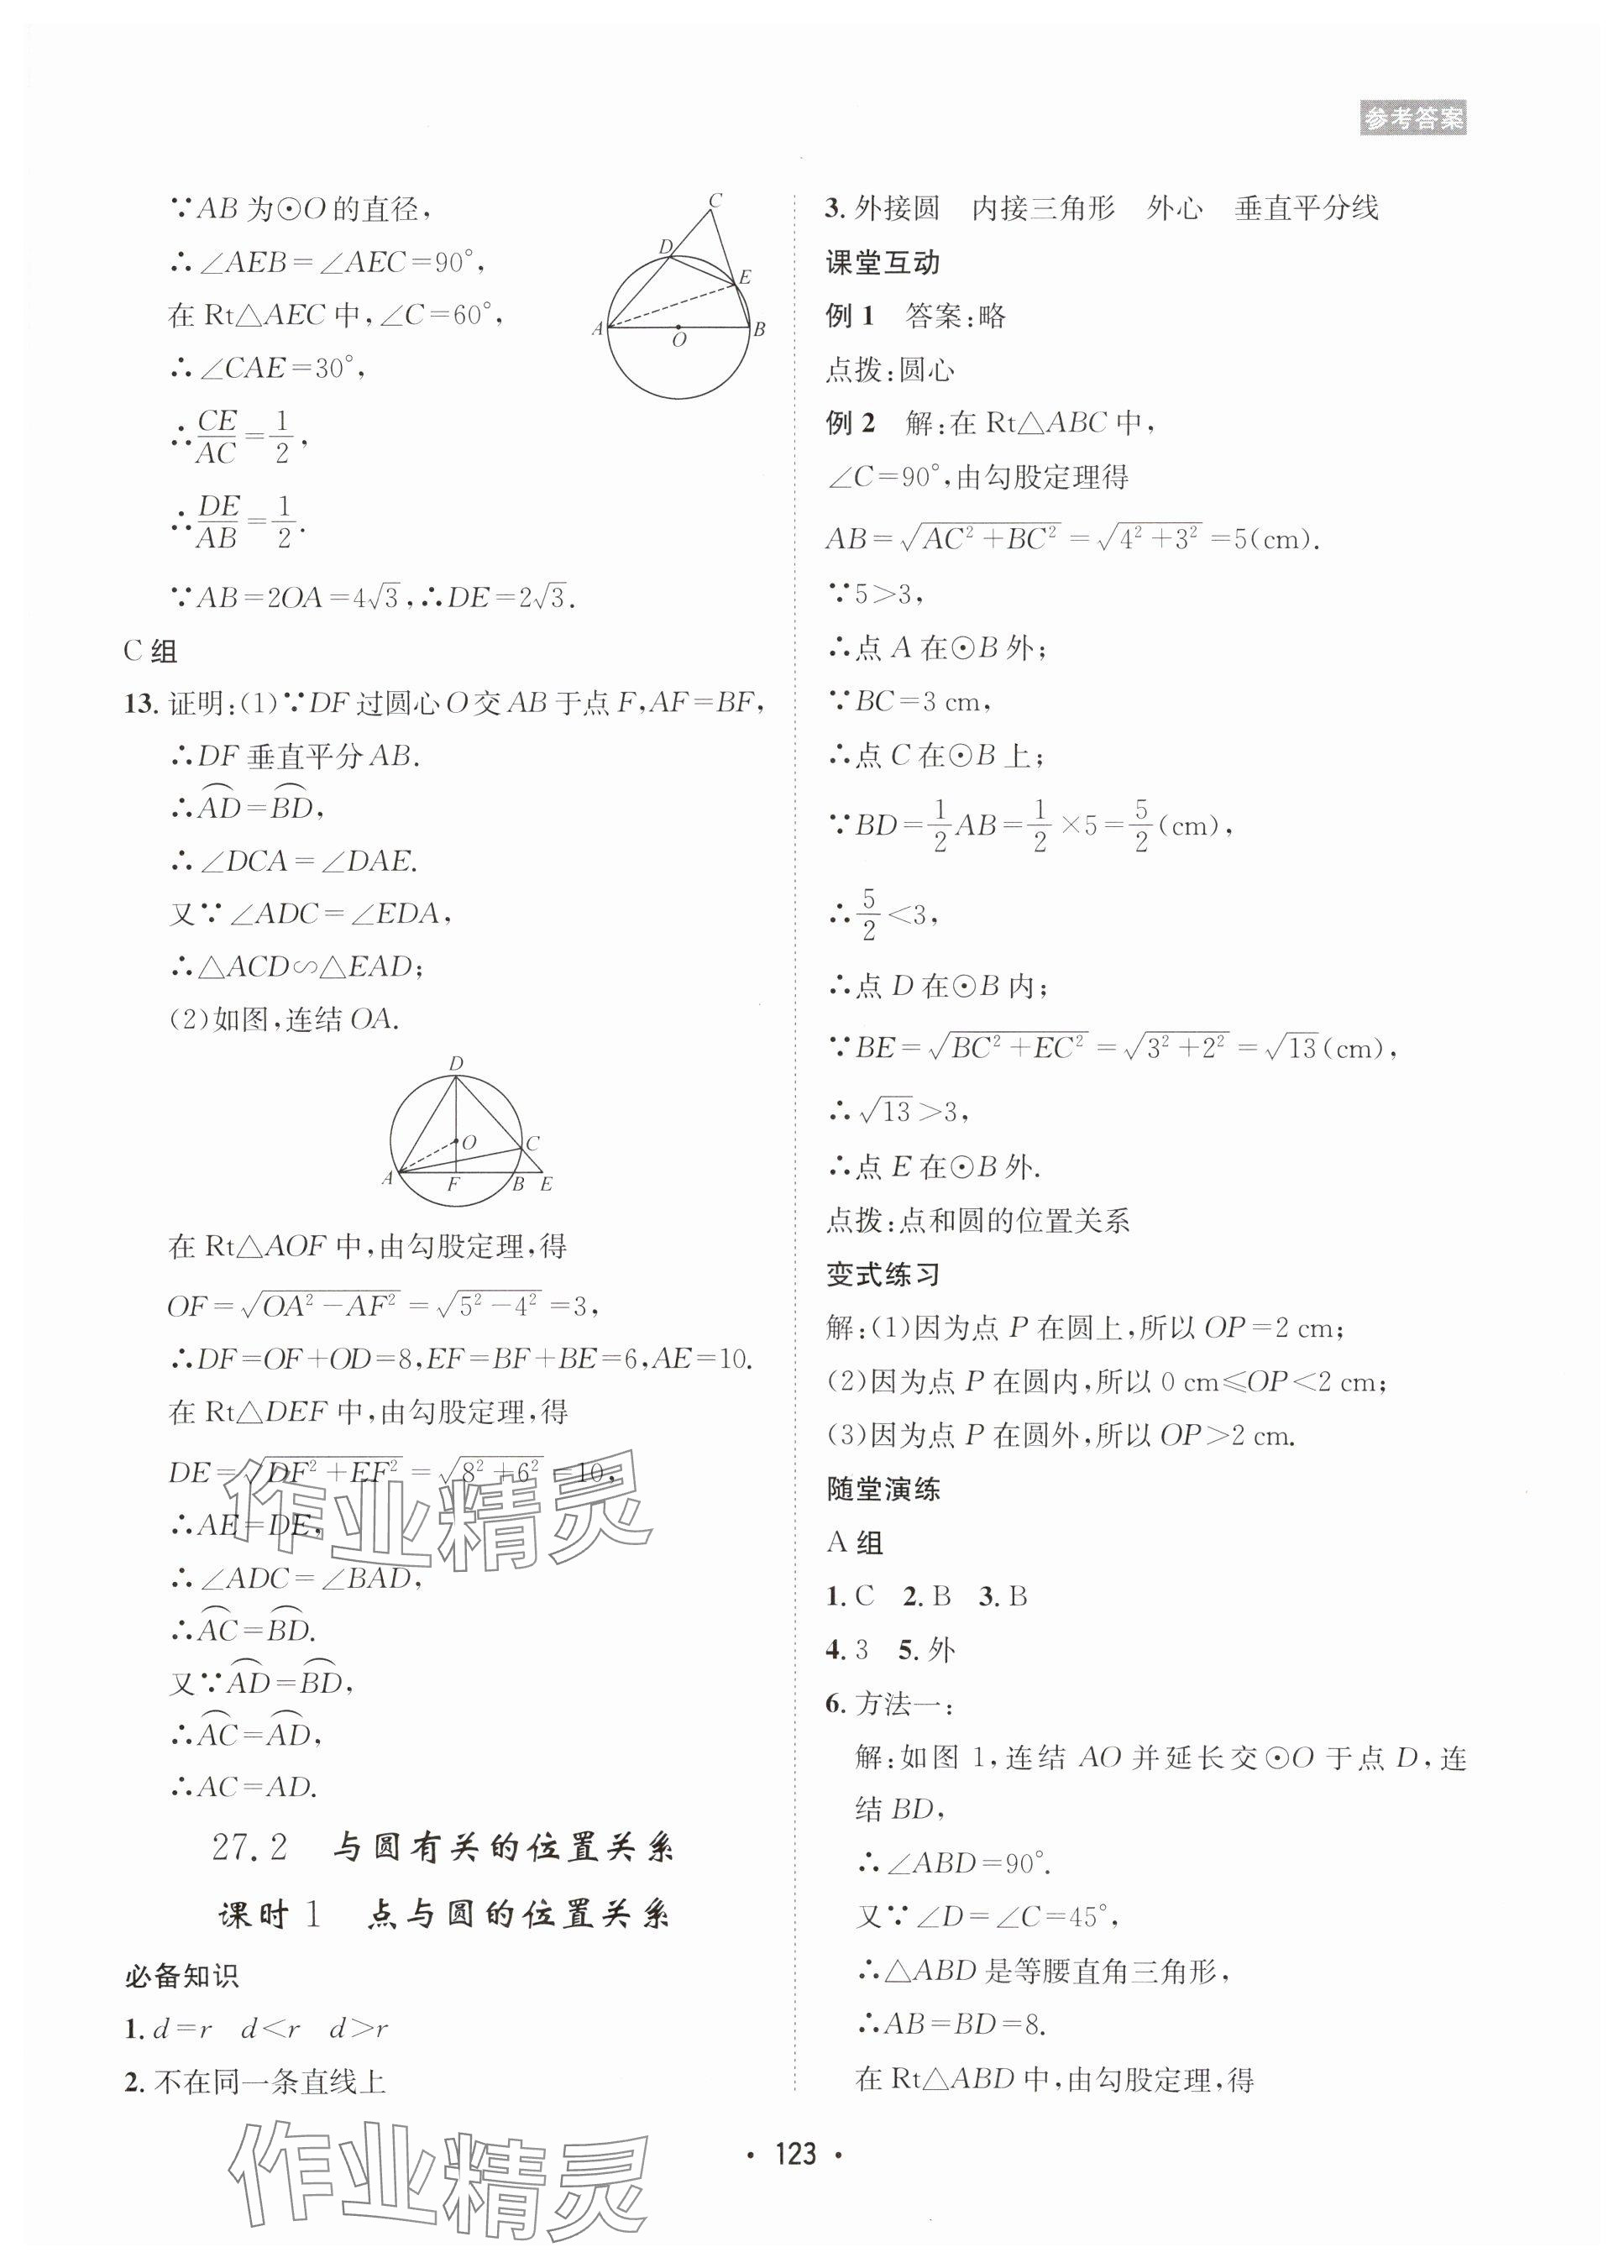 参考答案
∵AB为⊙O的直径,
∴∠AEB=∠AEC=90°,
在Rt△AEC中,∠C=60°,
∴∠CAE=30°,
∴CE/AC=1/2,
∴DE/AB=1/2.
∵AB=2OA=4√3,∴DE=2√3.
C
D
E
A
O
B
C组
13. 证明:(1)∵DF过圆心O交AB于点F,AF=BF,
∴DF垂直平分AB.
∴⌒AD=⌒BD,
∴∠DCA=∠DAE.
又∵∠ADC=∠EDA,
∴△ACD∽△EAD;
(2)如图,连结OA.
D
O
C
A
F
B
E
在Rt△AOF中,由勾股定理,得
OF=√(OA²-AF²)=√(5²-4²)=3,
∴DF=OF+OD=8,EF=BF+BE=6,AE=10.
在Rt△DEF中,由勾股定理,得
DE=√(DF²+EF²)=√(8²+6²)=10,
∴AE=DE,
∴∠ADC=∠BAD,
∴⌒AC=⌒BD.
又∵⌒AD=⌒BD,
∴⌒AC=⌒AD,
∴AC=AD.
27.2 与圆有关的位置关系
课时1 点与圆的位置关系
必备知识
1. d=r d<r d>r
2. 不在同一条直线上
3. 外接圆 内接三角形 外心 垂直平分线
课堂互动
例1 答案:略
点拨:圆心
例2 解:在Rt△ABC中,
∠C=90°,由勾股定理得
AB=√(AC²+BC²)=√(4²+3²)=5(cm).
∵5>3,
∴点A在⊙B外;
∵BC=3 cm,
∴点C在⊙B上;
∵BD=1/2AB=1/2×5=5/2(cm),
∴5/2<3,
∴点D在⊙B内;
∵BE=√(BC²+EC²)=√(3²+2²)=√13(cm),
∴√13>3,
∴点E在⊙B外.
点拨:点和圆的位置关系
变式练习
解:(1)因为点P在圆上,所以OP=2 cm;
(2)因为点P在圆内,所以0 cm⩽OP<2 cm;
(3)因为点P在圆外,所以OP>2 cm.
随堂演练
A组
1. C 2. B 3. B
4. 3 5. 外
6. 方法一:
解:如图1,连结AO并延长交⊙O于点D,连
结BD,
∴∠ABD=90°.
又∵∠D=∠C=45°,
∴△ABD是等腰直角三角形,
∴AB=BD=8.
在Rt△ABD中,由勾股定理,得
作业精灵
作业精灵
· 123 ·